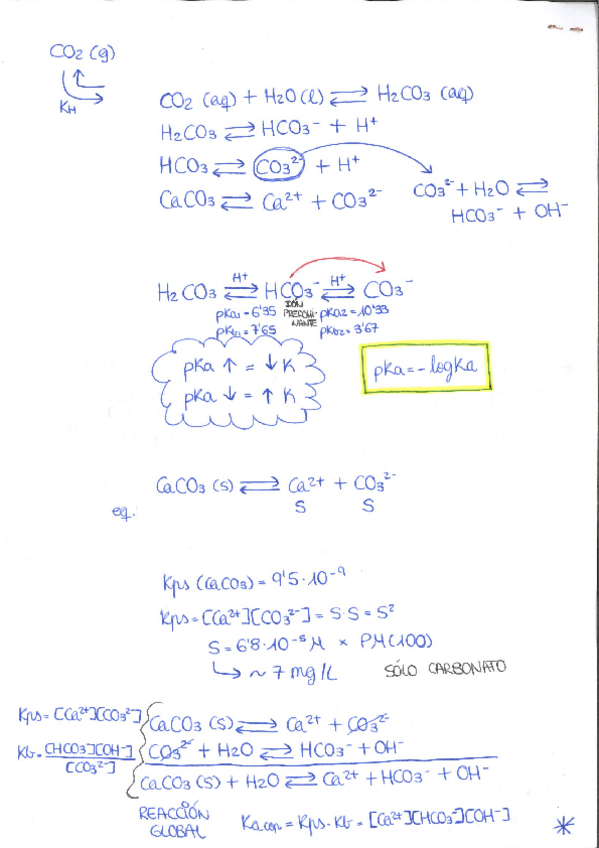 CO2 (g)
KH
CO2 (aq) + H2O (l) ⇌ H2CO3 (aq)
H2CO3 ⇌ HCO3⁻ + H⁺
HCO3 ⇌ CO3²⁻ + H⁺
CO3²⁻ + H2O ⇌
HCO3⁻ + OH⁻
CaCO3 ⇌ Ca²⁺ + CO3²⁻
H⁺ H⁺
H2CO3 ⇌ HCO3⁻ ⇌ CO3⁻
IÓN PREDOMINANTE
pKa1 = 6'35 pKa2 = 10'33
pKb1 = 7'65 pKb2 = 3'67
pKa ↑ = ↓ K
pKa ↓ = ↑ K
pKa = -logKa
CaCO3 (s) ⇌ Ca²⁺ + CO3²⁻
eq. S S
Kps (CaCO3) = 9'5·10⁻⁹
Kps = [Ca²⁺][CO3²⁻] = S·S = S²
S = 6'8·10⁻⁵ M × PM (100)
↳ ~ 7 mg/L SÓLO CARBONATO
Kps = [Ca²⁺][CO3²⁻] CaCO3 (s) ⇌ Ca²⁺ + CO3²⁻
Kb = [HCO3⁻][OH⁻] / [CO3²⁻] CO3²⁻ + H2O ⇌ HCO3⁻ + OH⁻
CaCO3 (s) + H2O ⇌ Ca²⁺ + HCO3⁻ + OH⁻
REACCIÓN GLOBAL
Kacop = Kps · Kb = [Ca²⁺][HCO3⁻][OH⁻]
*